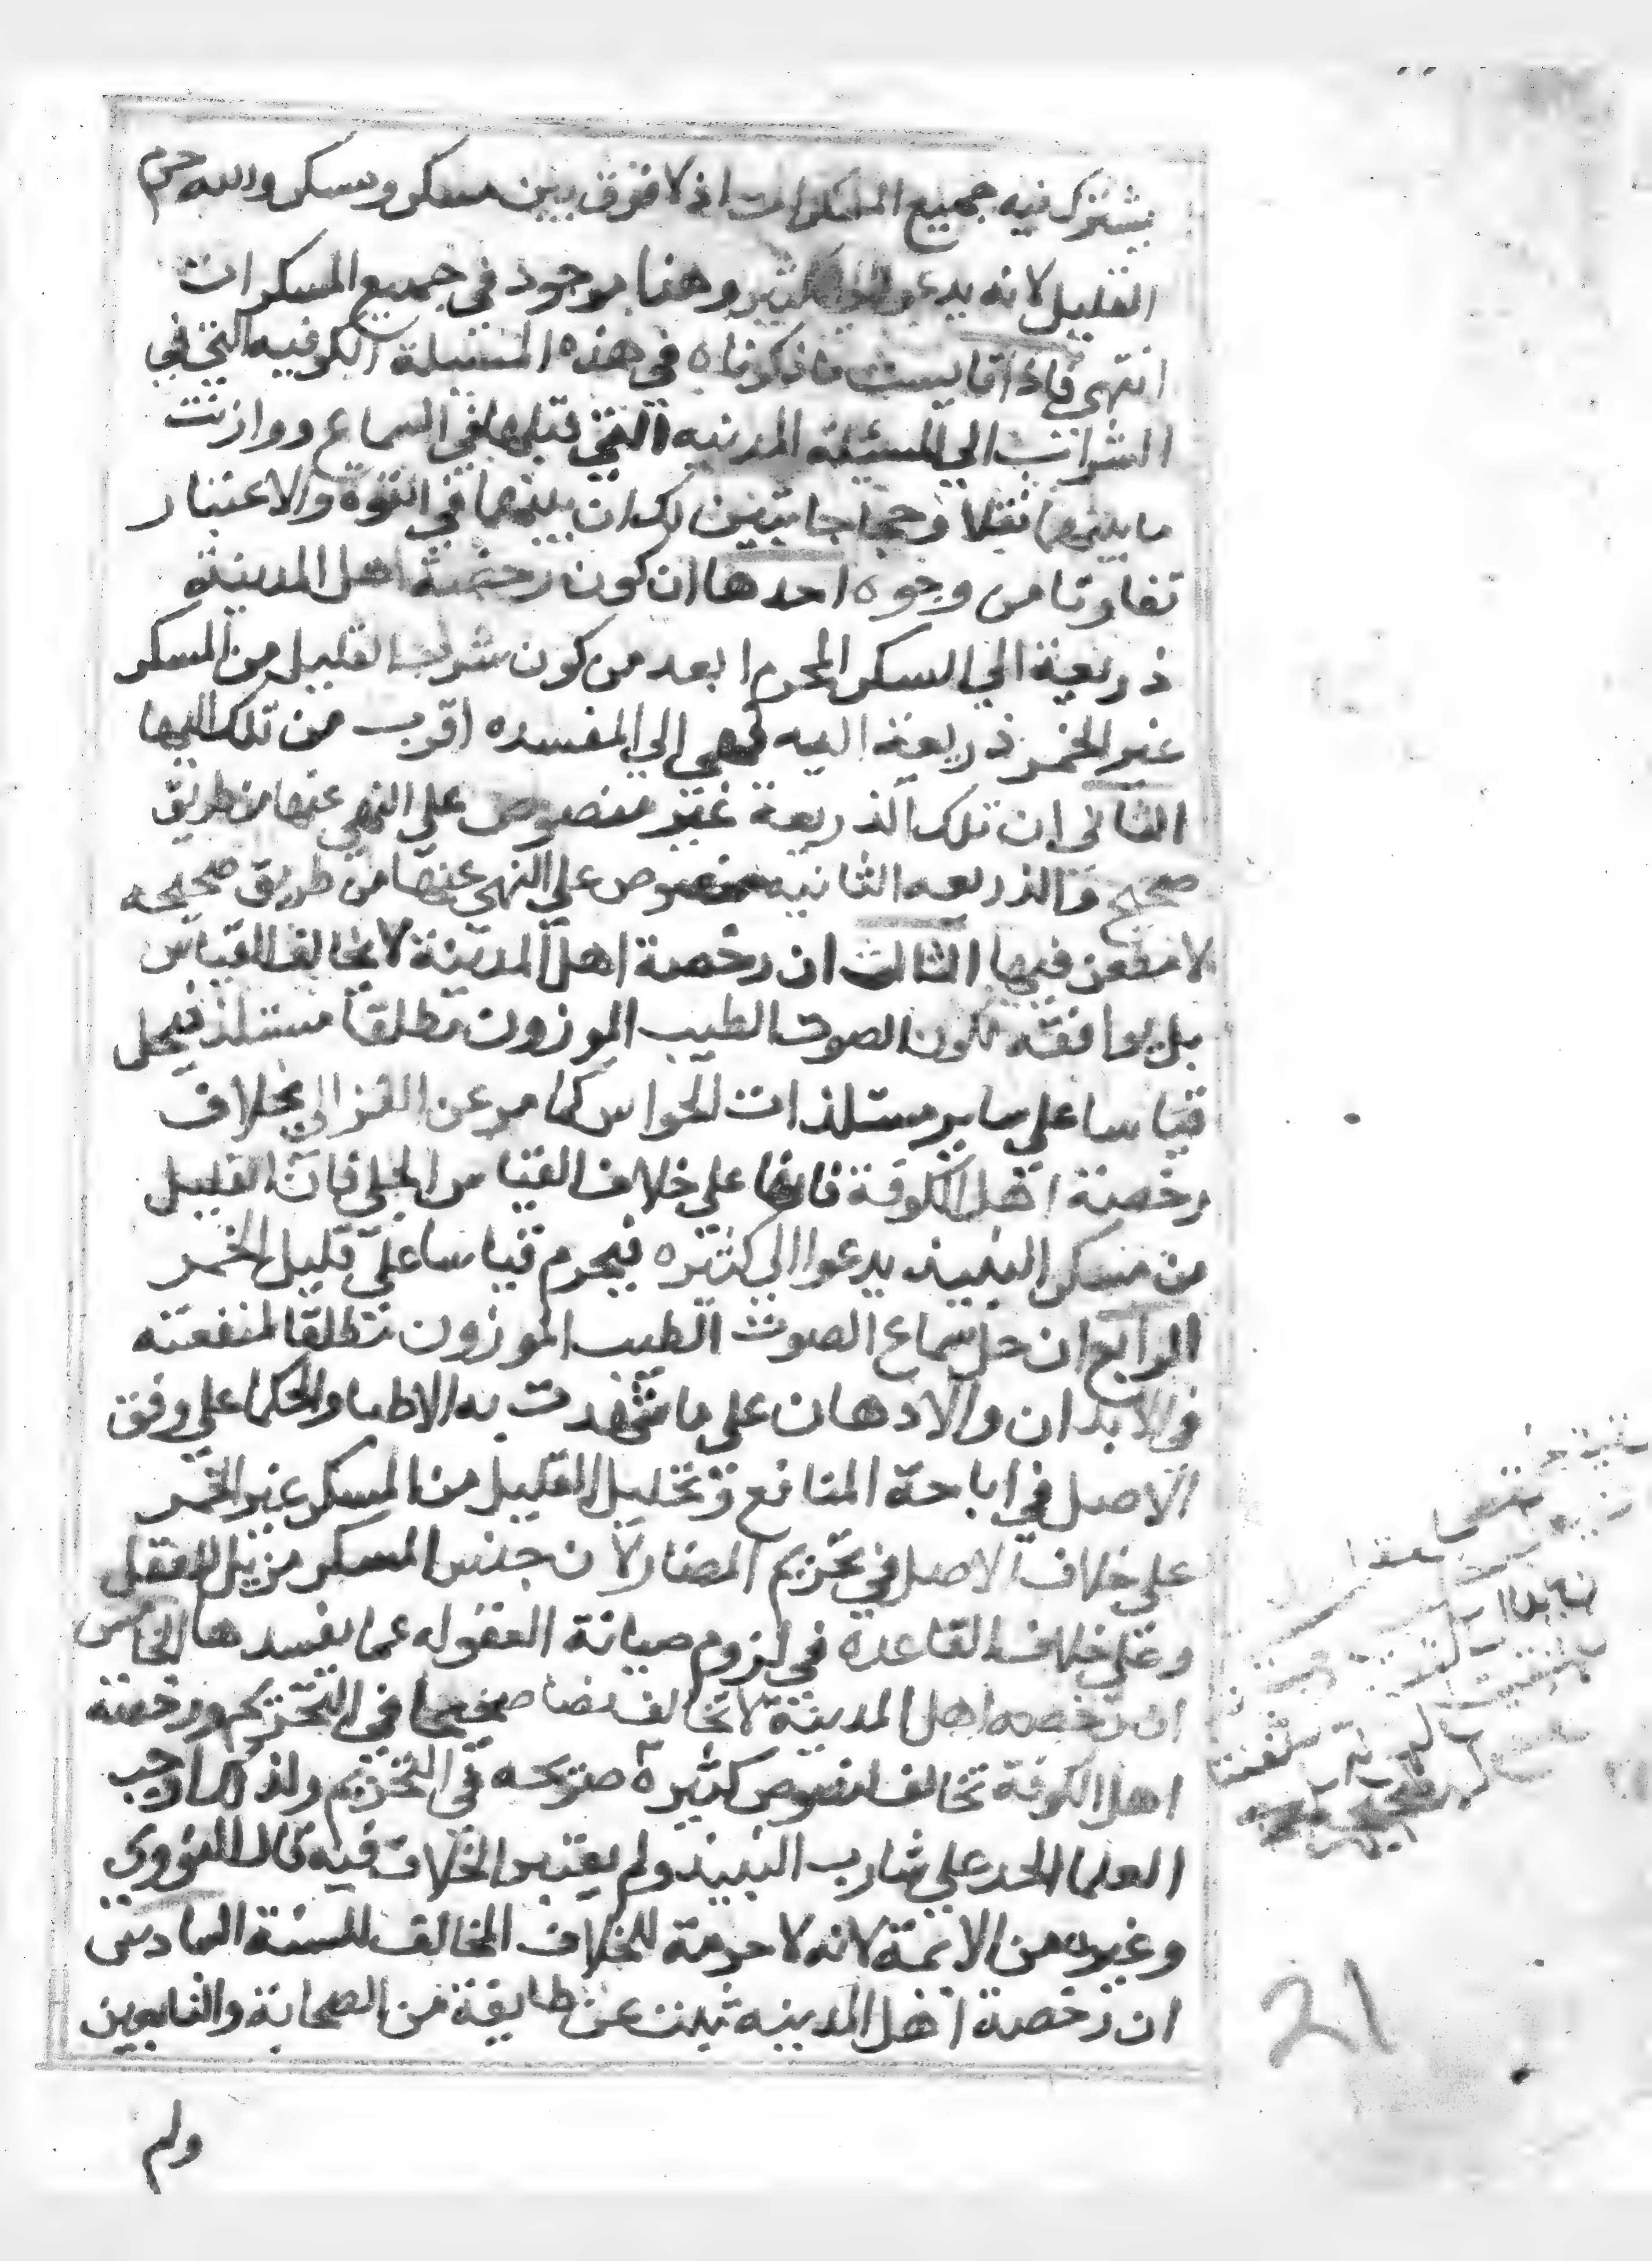 يشترك فيه جميع المسكرات اذ لا فرق بين مسكر ومسكر والله حرم
القليل لانه يدعو الى الكثير وهذا موجود في جميع المسكرات
انتهى فاذا قايست ما ذكرناه في هذه المسئلة الكوفيه التي في
الشراب الي المسئلة المدنيه التي قبلها في السماع ووازنت
ما بينهما نقلا وحجاجا تبين لك ان بينهما في القوة والاعتبار
تفاوتا من وجوه احدها ان كون رخصة اهل المدينة
ذريعة الي السكر المحرم ابعد من كون شرب القليل من المسكر
غير الخمر ذريعة اليه فهي الي المفسده اقرب من تلك اليها
الثاني ان تلك الذريعة غير منصوص علي النهي عنها من طريق
صحيح والذريعه الثانيه منصوص علي النهي عنها من طريق صحيحه
لا مطعن فيها الثالث ان رخصة اهل المدينة لا تخالف القياس
بل يوافقه لكون الصوت الطيب الموزون مطلقا مستلذ فيحل
قياسا علي ساير مستلذات الحواس كما مر عن الغزالي بخلاف
رخصة اهل الكوفة فانها علي خلاف القياس الجلي فان القليل
من مسكر النبيذ يدعوا الي كثيره فيحرم قياسا علي قليل الخمر
الرابع ان حل سماع الصوت الطيب الموزون مطلقا لمنفعته
في الابدان والادهان علي ما شهدت به الاطبا والحكما علي وفق
الاصل في اباحة المنافع وتحليل القليل من المسكر غير الخمر
علي خلاف الاصل في تحريم المضار لان جنس المسكر مزيل للعقل
وعلي خلاف القاعده في لزوم صيانة العقول عما يفسدها الخامس
ان رخصه اهل المدينة لا تخالف نصا صحيحا في التحريم ورخصة
اهل الكوفة تخالف نصوص كثيرة صريحه في التحريم ولذلك اوجب
العلما الحد علي شارب النبيذ ولم يعتبر الخلاف فيه قال النووي
وغيره من الائمة لانه لا حرمة للخلاف المخالف للسنة السادس
ان رخصة اهل المدينه ثبتت عن طايفة من الصحابة والتابعين
ولم
21